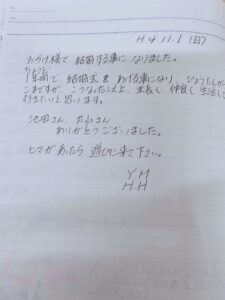 H4.11.1(日)
おかげ様で結婚する事になりました。
ちょうど
1年間で、結婚式をあげる事になり、ひょうたんから
こまですが、こうなった以上、末長く、仲良く生活して
行きたいと思います。
池田さん、丸山さん
ありがとうございました。
ヒマがあったら遊びに来て下さい。
YM
HH